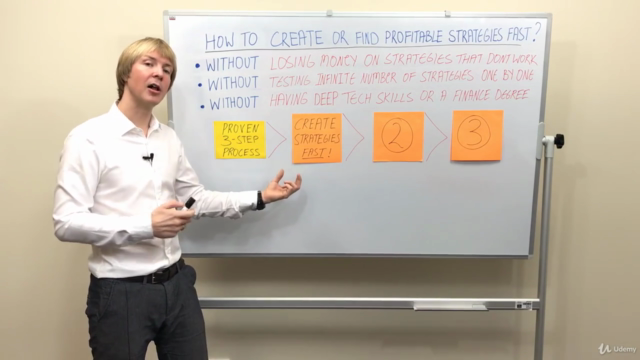 HOW TO CREATE OR FIND PROFITABLE STRATEGIES FAST?
• WITHOUT LOSING MONEY ON STRATEGIES THAT DON'T WORK
• WITHOUT TESTING INFINITE NUMBER OF STRATEGIES ONE BY ONE
• WITHOUT HAVING DEEP TECH SKILLS OR A FINANCE DEGREE
PROVEN
3-STEP
PROCESS
CREATE
STRATEGIES
FAST!
2
3
Udemy